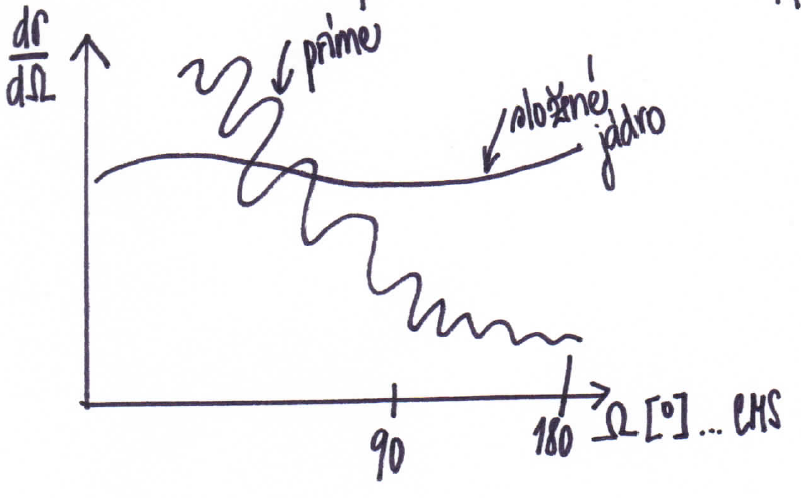 dσ
dΩ
přímé
složené
jádro
90
180
Ω [°] ... CMS